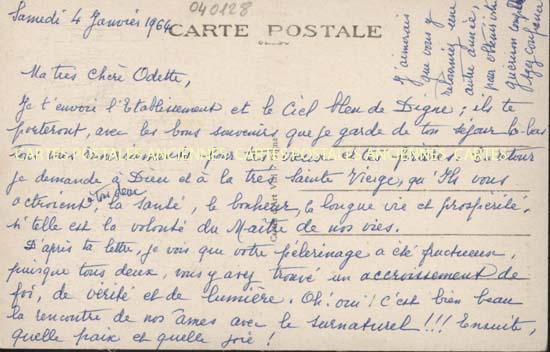 Samedi 4 Janvier 1964
040128
CARTE POSTALE
J'aimerais
que vous y
retourniez une
autre année,
pour obtenir
Ma très chère Odette,
Je t'envoie l'Etablissement et le Ciel bleu de Digne; ils te
porteront, avec les bons souvenirs que je garde de ton séjour là-bas
mes remerciements pour tes vœux et tes prières. En retour
je demande à Dieu et à la très Sainte Vierge, qu'Ils vous
à tous deux
octroient, la santé, le bonheur, la longue vie et prospérité,
si telle est la volonté du Maître de nos vies.
D'après ta lettre, je vois que votre pèlerinage a été fructueux,
puisque tous deux, vous y avez trouvé un accroissement de
foi, de vérité et de lumière. Oh! oui! c'est bien beau
la rencontre de nos âmes avec le surnaturel!!! Ensuite,
quelle paix et quelle joie!
CARTES POSTALES ANCIENNES